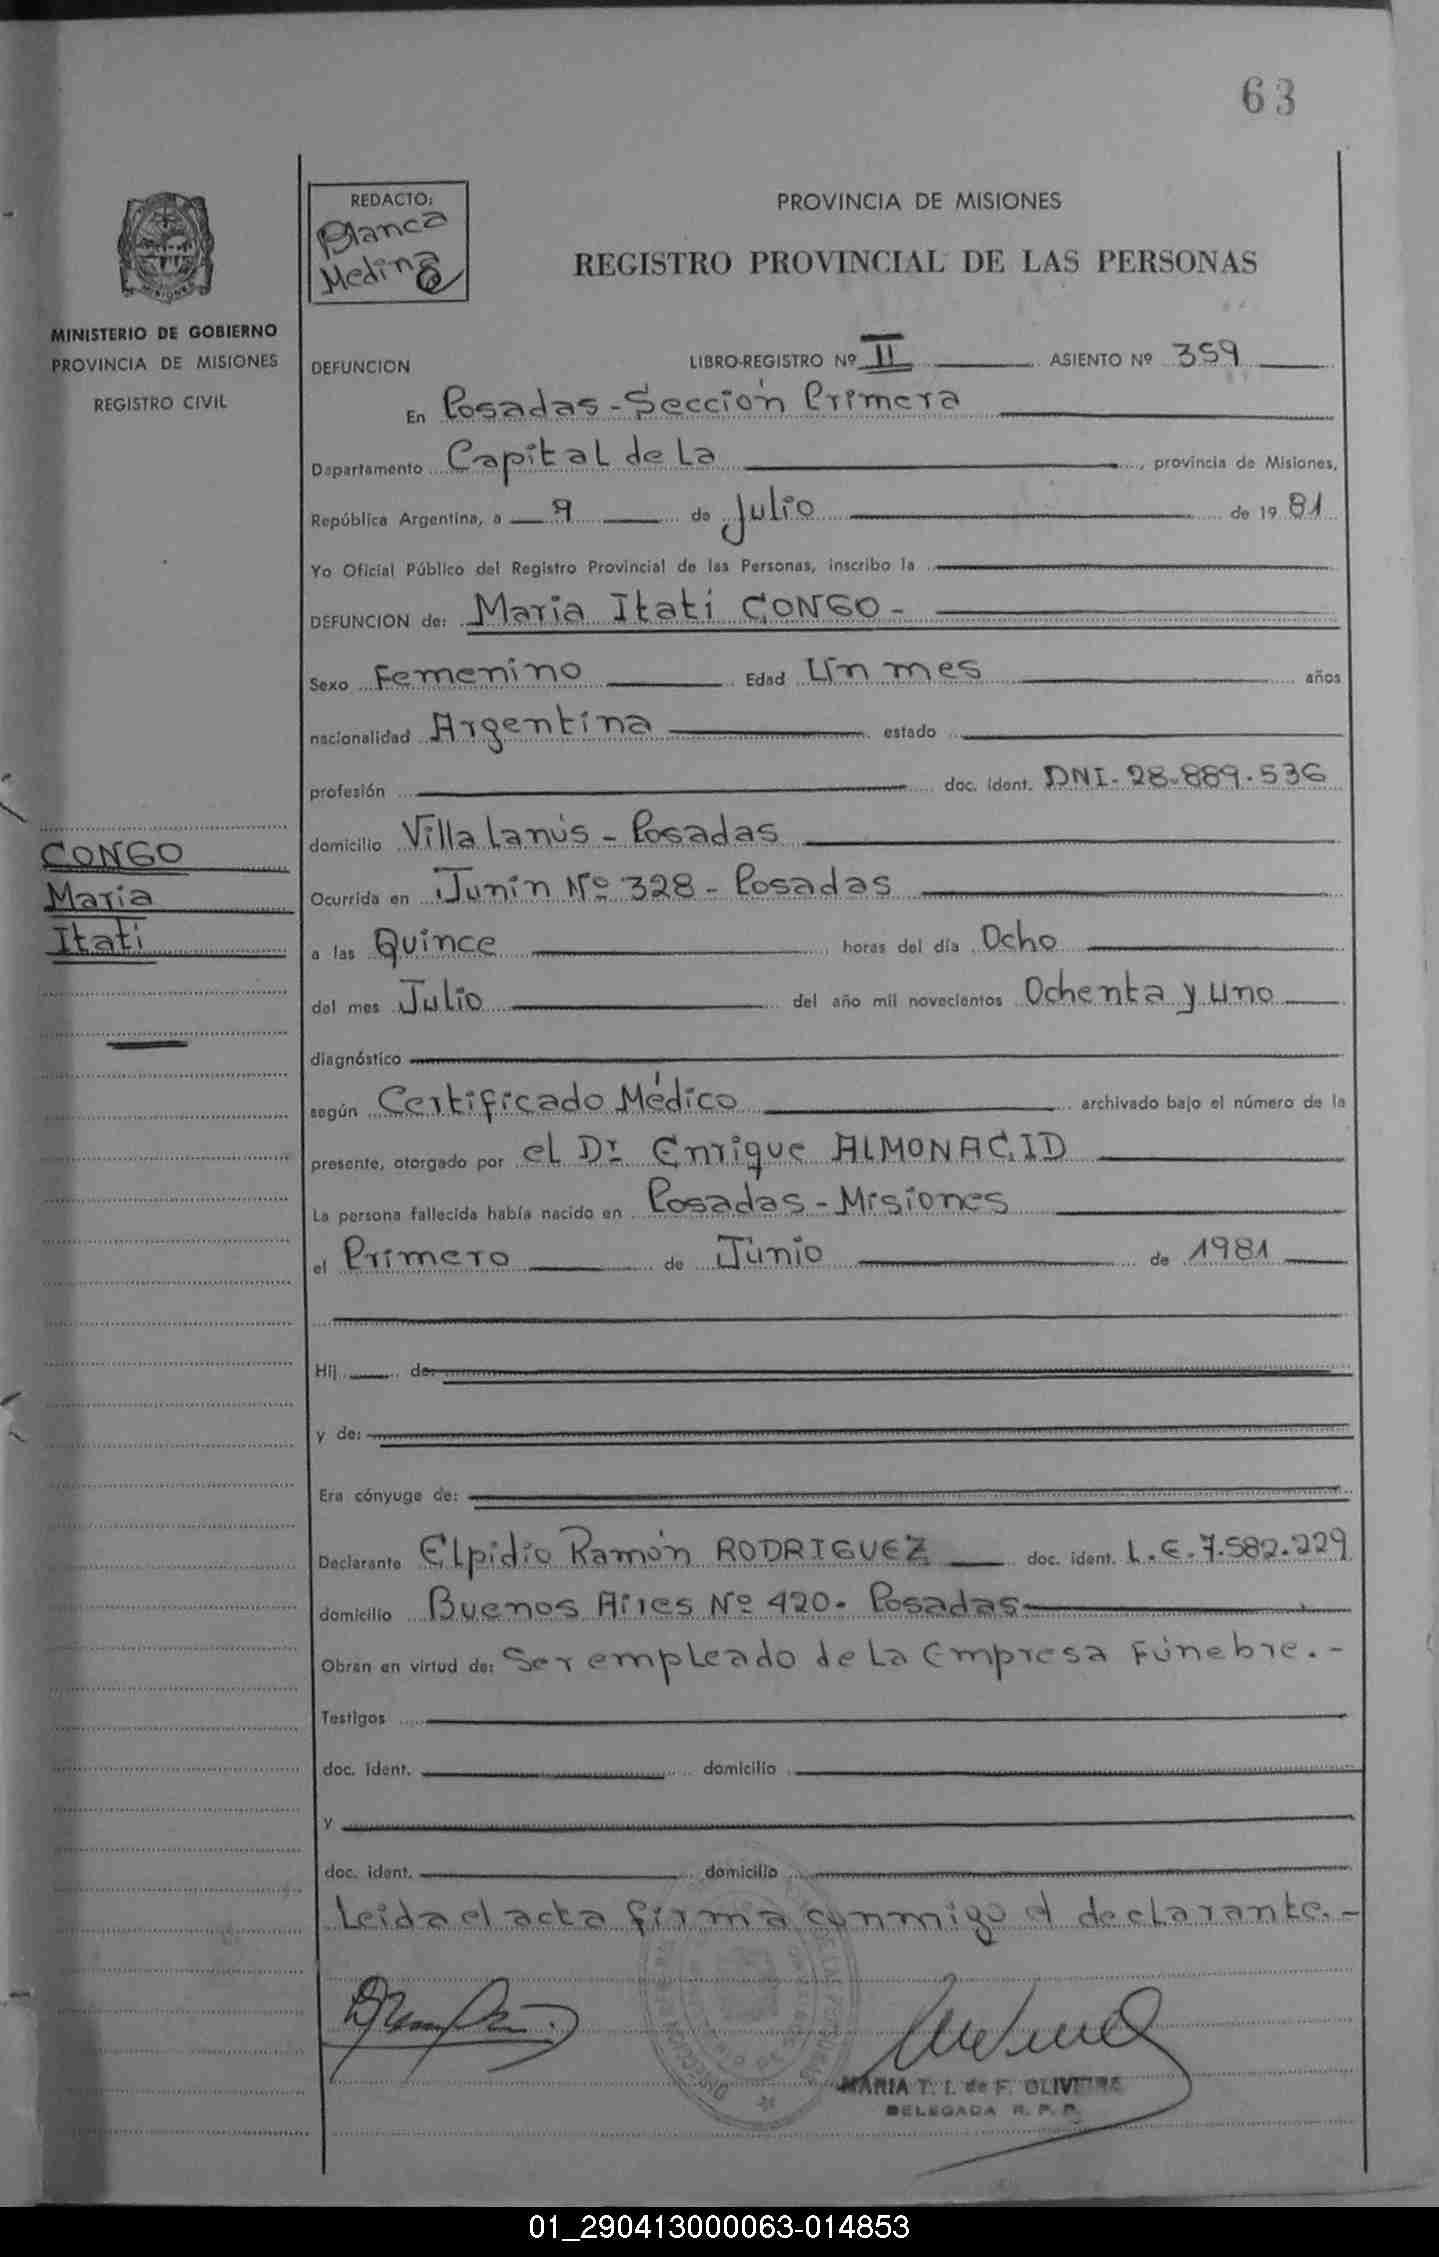 63
REDACTO:
Blanca
Medina
PROVINCIA DE MISIONES
REGISTRO PROVINCIAL DE LAS PERSONAS
MISIONES
MINISTERIO DE GOBIERNO
PROVINCIA DE MISIONES
REGISTRO CIVIL
DEFUNCION LIBRO-REGISTRO Nº II ASIENTO Nº 359
En Posadas - Sección Primera
Departamento Capital de La, provincia de Misiones,
República Argentina, a 9 de Julio de 19 81
Yo Oficial Público del Registro Provincial de las Personas, inscribo la
DEFUNCION de: Maria Itatí CONGO -
Sexo Femenino Edad Un mes años
nacionalidad Argentina estado
profesión doc. ident. DNI - 28.889.536
domicilio Villa Lanús - Posadas
CONGO
Maria
Itatí
Ocurrida en Junin Nº 328 - Posadas
a las Quince horas del día Ocho
del mes Julio del año mil novecientos Ochenta y uno
diagnóstico
según Certificado Médico archivado bajo el número de la
presente, otorgado por el Dr Enrique ALMONACID
La persona fallecida había nacido en Posadas - Misiones
el Primero de Junio de 1981
Hij de:
y de:
Era cónyuge de:
Declarante Elpidio Ramón RODRIGUEZ doc. ident. L.E. 7.582.229
domicilio Buenos Aires Nº 420. Posadas
Obran en virtud de: Ser empleado de La Empresa Fúnebre. -
Testigos
doc. ident. domicilio
y
doc. ident. domicilio
Leida el acta firma conmigo el declarante. -
MARIA T. I. de F. OLIVEIRA
DELEGADA R. P. P.
01_290413000063-014853